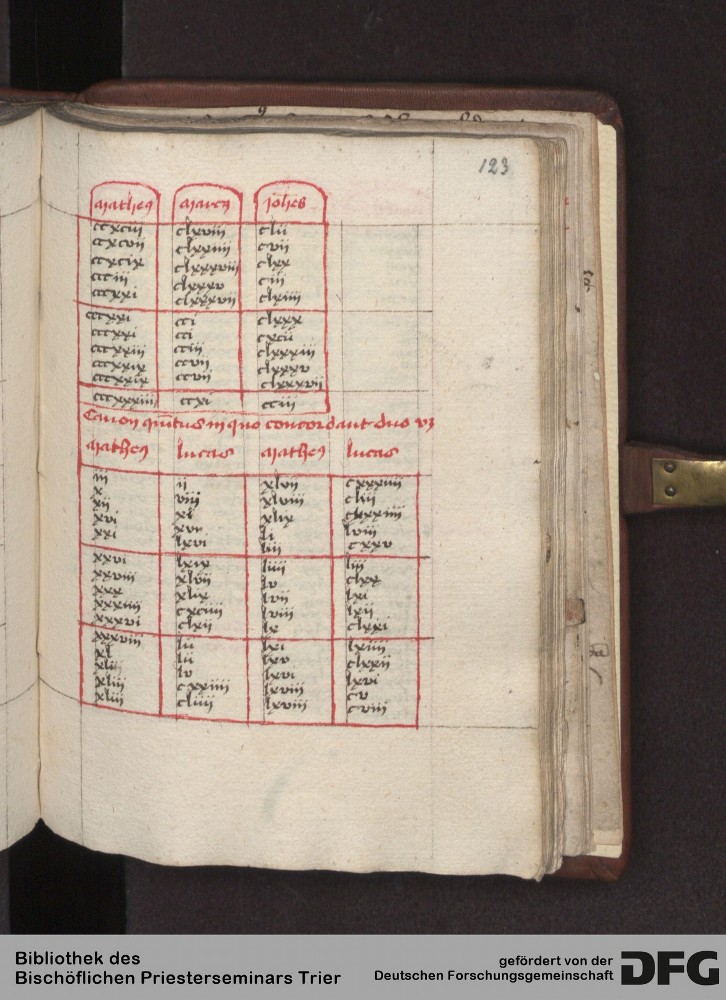 123
Matheꝰ Marcꝰ Joh̄es
ccxciii clxviii clii
ccxcvii clxxiiii cvii
ccxcix clxxxviii clxx
ccciii clxxxv ciii
cccxxi clxxxvii clxiiii
cccxxi cci clxxx
cccxxi cci cxcii
cccxxiii cciii clxxxiii
cccxxix ccvii clxxxv
cccxxix ccvii clxxxvii
cccxxxiiii ccxi cciii
Canon quītus in quo concordant duo vꝫ
Matheꝰ lucas Matheꝰ lucas
iii ii xlvii cxxxiiii
x viii xlviii clii
xii xi xlix
xvi xvi li lviii
xxi lxvi liii cxxv
xxvi lxix liiii liii
xxviii xlvii lv clxx
xxx xlix lvii lxi
xxxiiii cxciiii lviii lxii
xxxvi clxii lx clxxi
xxxviii lii lxi lxiiii
xl lii lxv clxxii
xli lv lxvi lxvi
xliii cxxiiii lxviii cv
xliii cliiii lxviii cviii
Bibliothek des
Bischöflichen Priesterseminars Trier
gefördert von der
Deutschen Forschungsgemeinschaft DFG